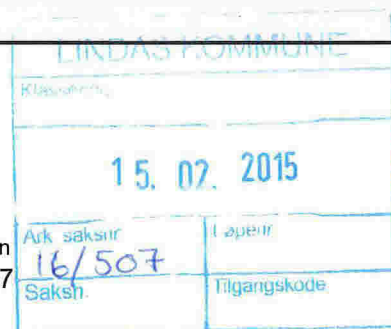 LINDÅS KOMMUNE
Klassering
15. 02. 2015
n
Ark saksnr
Løpenr
16/507
7
Saksh.
Tilgangskode